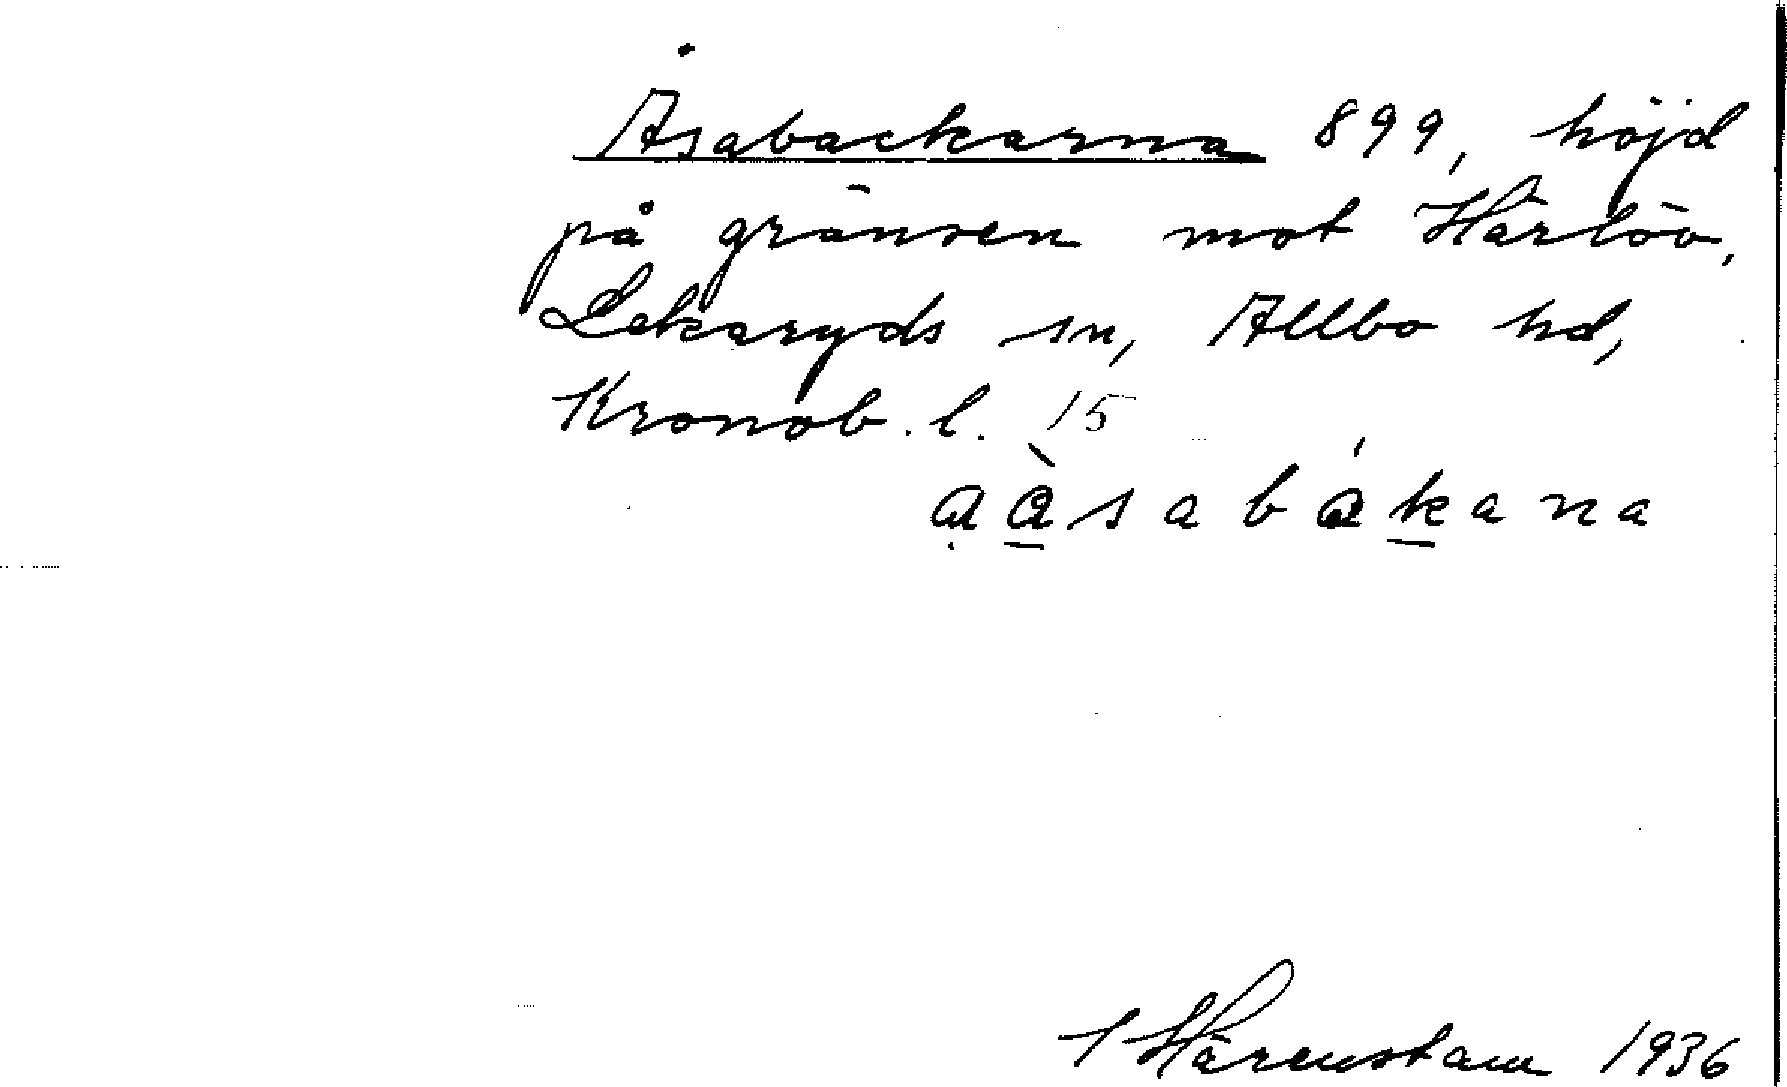 Åsabackarna 899, höjd
på gränsen mot Härlöv,
Lekaryds sn, Allbo hd,
Kronob. l. 15
ạàsabákana
Härenstam 1936